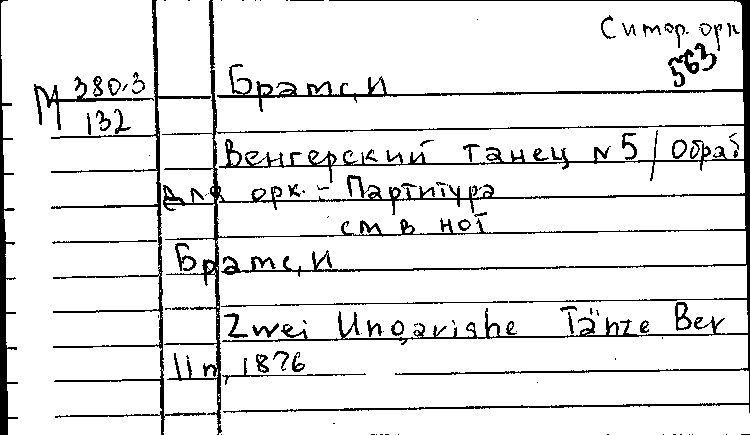 Симор. орк
563
М 380.3
132
Брамс, И
Венгерский танец N 5 / Обраб
для орк. - Партитура
см в нот
Брамс, И
Zwei Ungarishe Tänze Ber
lin, 1876